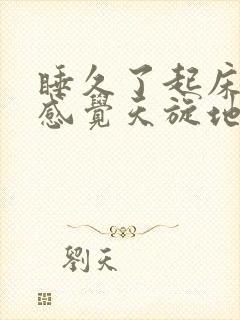 睡久了起床
感覺天旋地
劉天